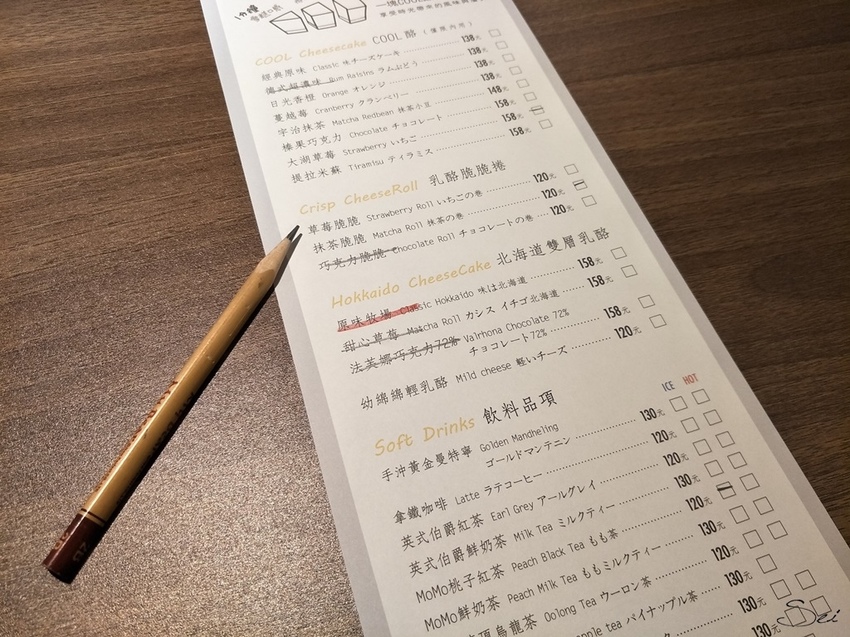 1分鐘
一塊COOL
COOL Cheesecake COOL酪
經典原味 Classic 味チーズケーキ 138
Rum Raisins ラムぶどう 138
日光香橙 Orange オレンジ 138
蔓越莓 Cranberry クランベリー 138
宇治抹茶 Matcha Redbean 抹茶小豆 148
榛果巧克力 Chocolate チョコレート 158
大湖草莓 Strawberry いちご 158
提拉米蘇 Tiramisu ティラミス 158
Crisp CheeseRoll 乳酪脆脆捲
草莓脆脆 Strawberry Roll いちごの巻 120元
抹茶脆脆 Matcha Roll 抹茶の巻 120元
巧克力脆脆 Chocolate Roll チョコレートの巻 120元
Hokkaido CheeseCake 北海道雙層乳酪
原味牧場 Classic Hokkaido 味は北海道 158元
甜心草莓 Matcha Roll カシス イチゴ北海道 158元
法芙娜巧克力72% Valrhona Chocolate 72%
チョコレート72% 158元
幼綿綿輕乳酪 Mild cheese 軽いチーズ 120元
Soft Drinks 飲料品項
ICE HOT
手沖黃金曼特寧 Golden Mandheling
ゴールドマンテニン 130元
拿鐵咖啡 Latte ラテコーヒー 120元
英式伯爵紅茶 Earl Grey アールグレイ 120元
英式伯爵鮮奶茶 Milk Tea ミルクティー 130元
MoMo桃子紅茶 Peach Black Tea もも茶 120元
MoMo鮮奶茶 Peach Milk Tea ももミルクティー 130元
頂烏龍茶 Oolong Tea ウーロン茶 120元
apple tea パイナップル茶 130元
130元
Sei